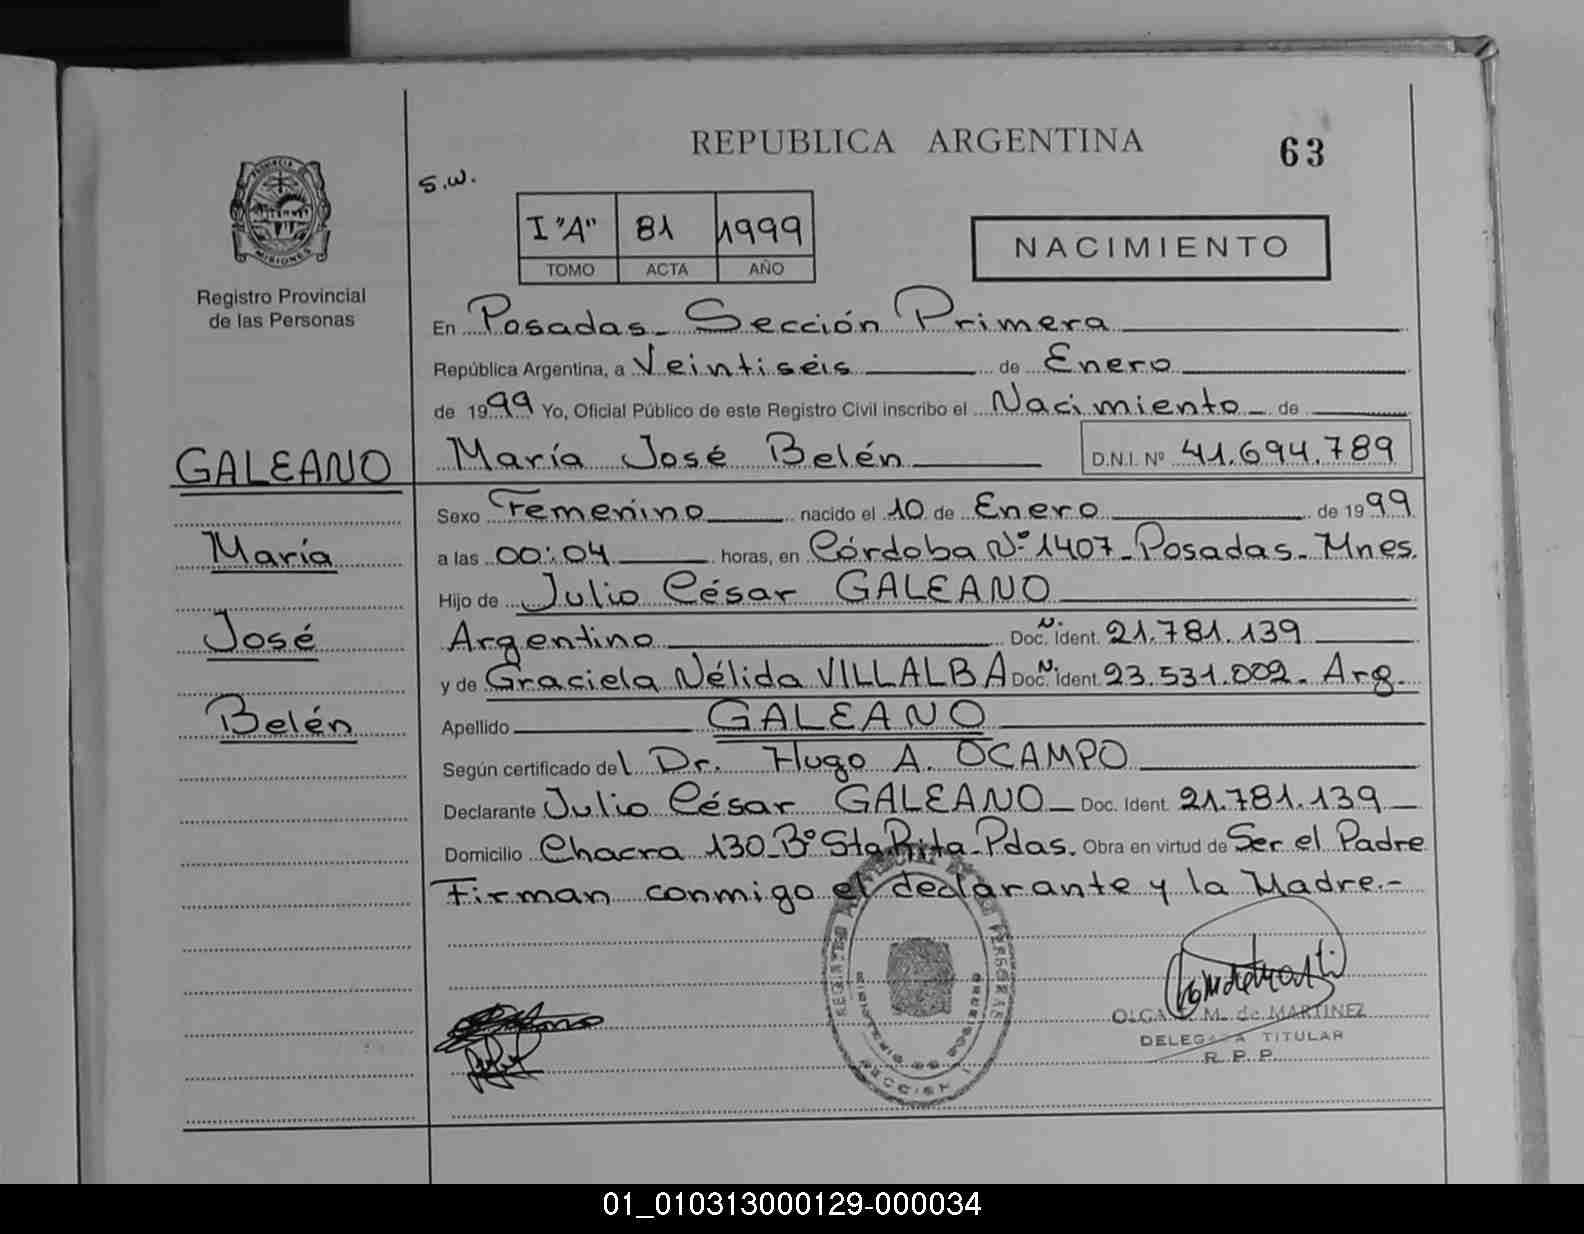 REPUBLICA ARGENTINA
63
S.W.
PROVINCIA
MISIONES
I "A" 81 1999
TOMO ACTA AÑO
NACIMIENTO
Registro Provincial
de las Personas
En Posadas - Sección Primera
República Argentina, a Veintiséis de Enero
de 1999 Yo, Oficial Público de este Registro Civil inscribo el Nacimiento de
GALEANO
María José Belén D.N.I. Nº 41.694.789
Sexo Femenino nacido el 10 de Enero de 1999
María
a las 00:04 horas, en Córdoba Nº 1407 - Posadas - Mnes.
Hijo de Julio César GALEANO
José
Argentino Doc. Nº Ident. 21.781.139
y de Graciela Nélida VILLALBA Doc. Nº Ident. 23.531.002 - Arg.
Belén
Apellido GALEANO
Según certificado del Dr. Hugo A. OCAMPO
Declarante Julio César GALEANO Doc. Ident. 21.781.139
Domicilio Chacra 130 - Bº Sta Rita - Pdas. Obra en virtud de Ser el Padre
Firman conmigo el declarante y la Madre.-
REGISTRO PERSONAS
SECCION
OLGA M. de MARTINEZ
DELEGADA TITULAR
R. P. P.
01_010313000129-000034